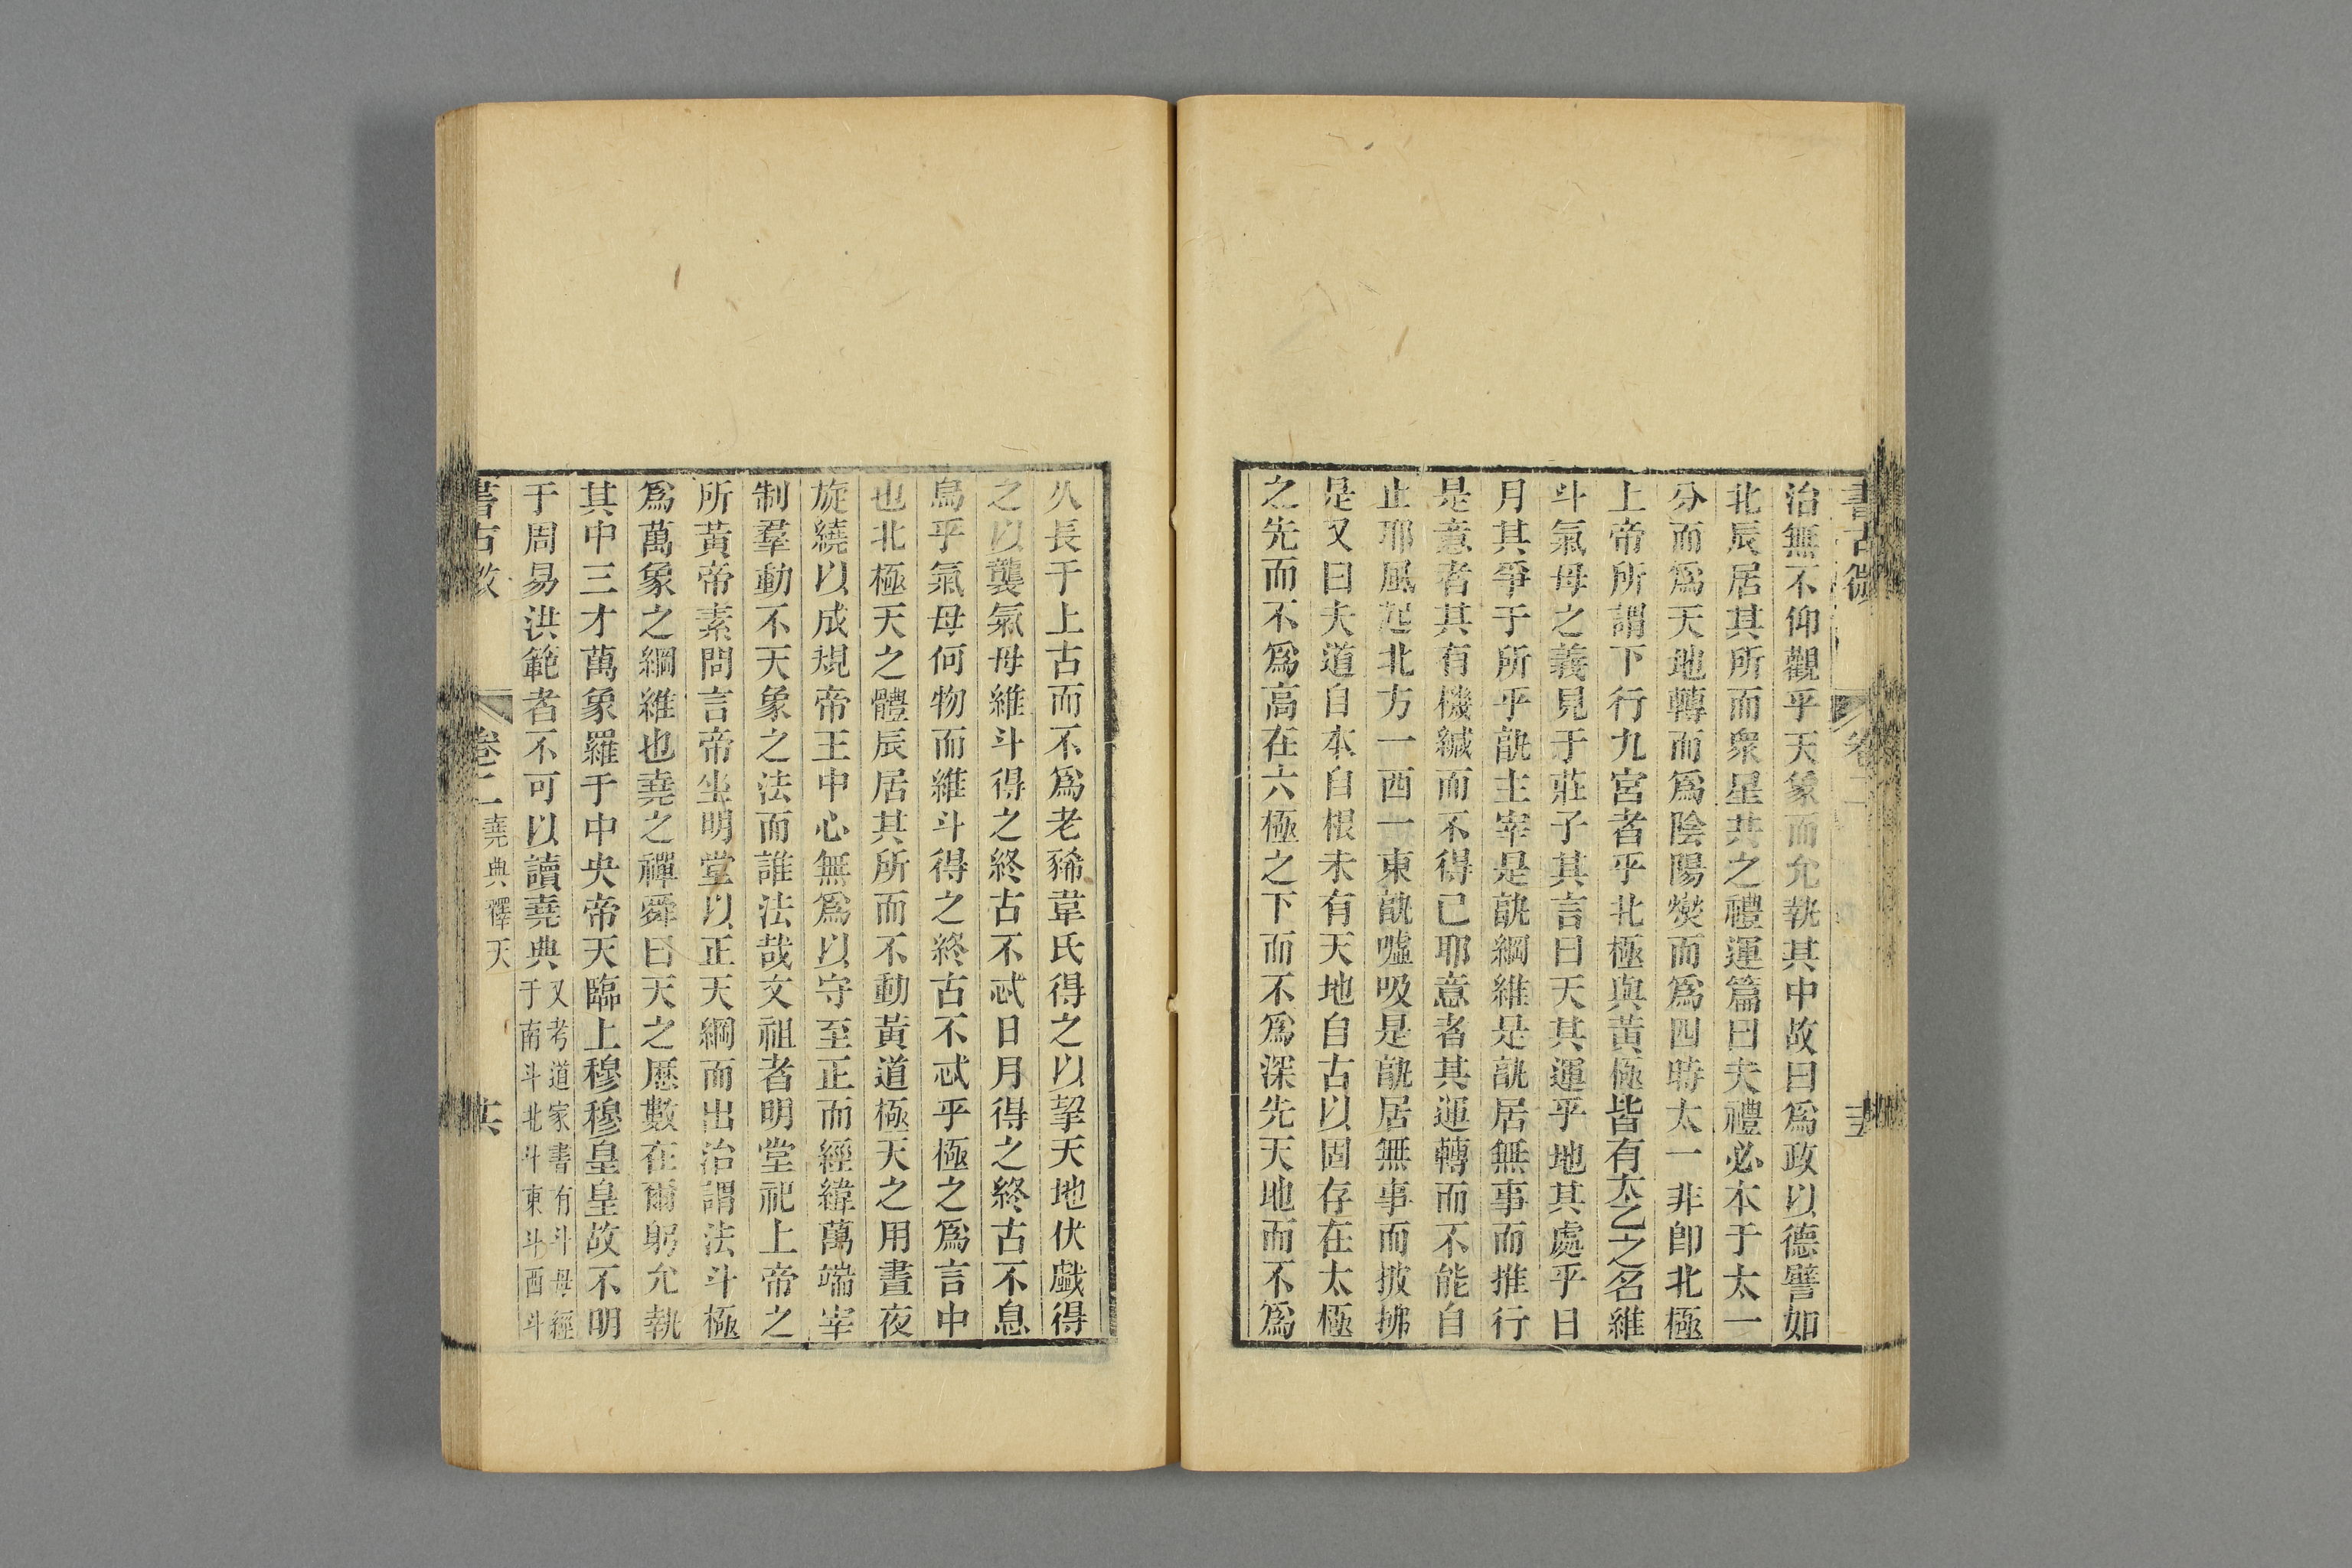 書古微
卷二
治無不仰觀乎天象而允執其中故曰爲政以德譬如
北辰居其所而衆星共之禮運篇曰夫禮必本于太一
分而爲天地轉而爲陰陽變而爲四時太一非卽北極
上帝所謂下行九宮者乎北極與黃極皆有太乙之名維
斗氣母之義見于莊子其言曰天其運乎地其處乎日
月其爭于所乎孰主宰是孰綱維是孰居無事而推行
是意者其有機緘而不得已耶意者其運轉而不能自
止耶風起北方一西一東孰噓吸是孰居無事而披拂
是又曰夫道自本自根未有天地自古以固存在太極
之先而不爲高在六極之下而不爲深先天地而不爲
久長于上古而不爲老豨韋氏得之以挈天地伏戲得
之以襲氣母維斗得之終古不忒日月得之終古不息
烏乎氣母何物而維斗得之終古不忒乎極之爲言中
也北極天之體辰居其所而不動黃道極天之用晝夜
旋繞以成規帝王中心無爲以守至正而經緯萬端宰
制羣動不天象之法而誰法哉文祖者明堂祀上帝之
所黃帝素問言帝坐明堂以正天綱而出治謂法斗極
爲萬象之綱維也堯之禪舜曰天之厯數在爾躬允執
其中三才萬象羅于中央帝天臨上穆穆皇皇故不明
于周易洪範者不可以讀堯典又考道家書有斗母經
于南斗北斗東斗西斗
卷二 堯典釋天